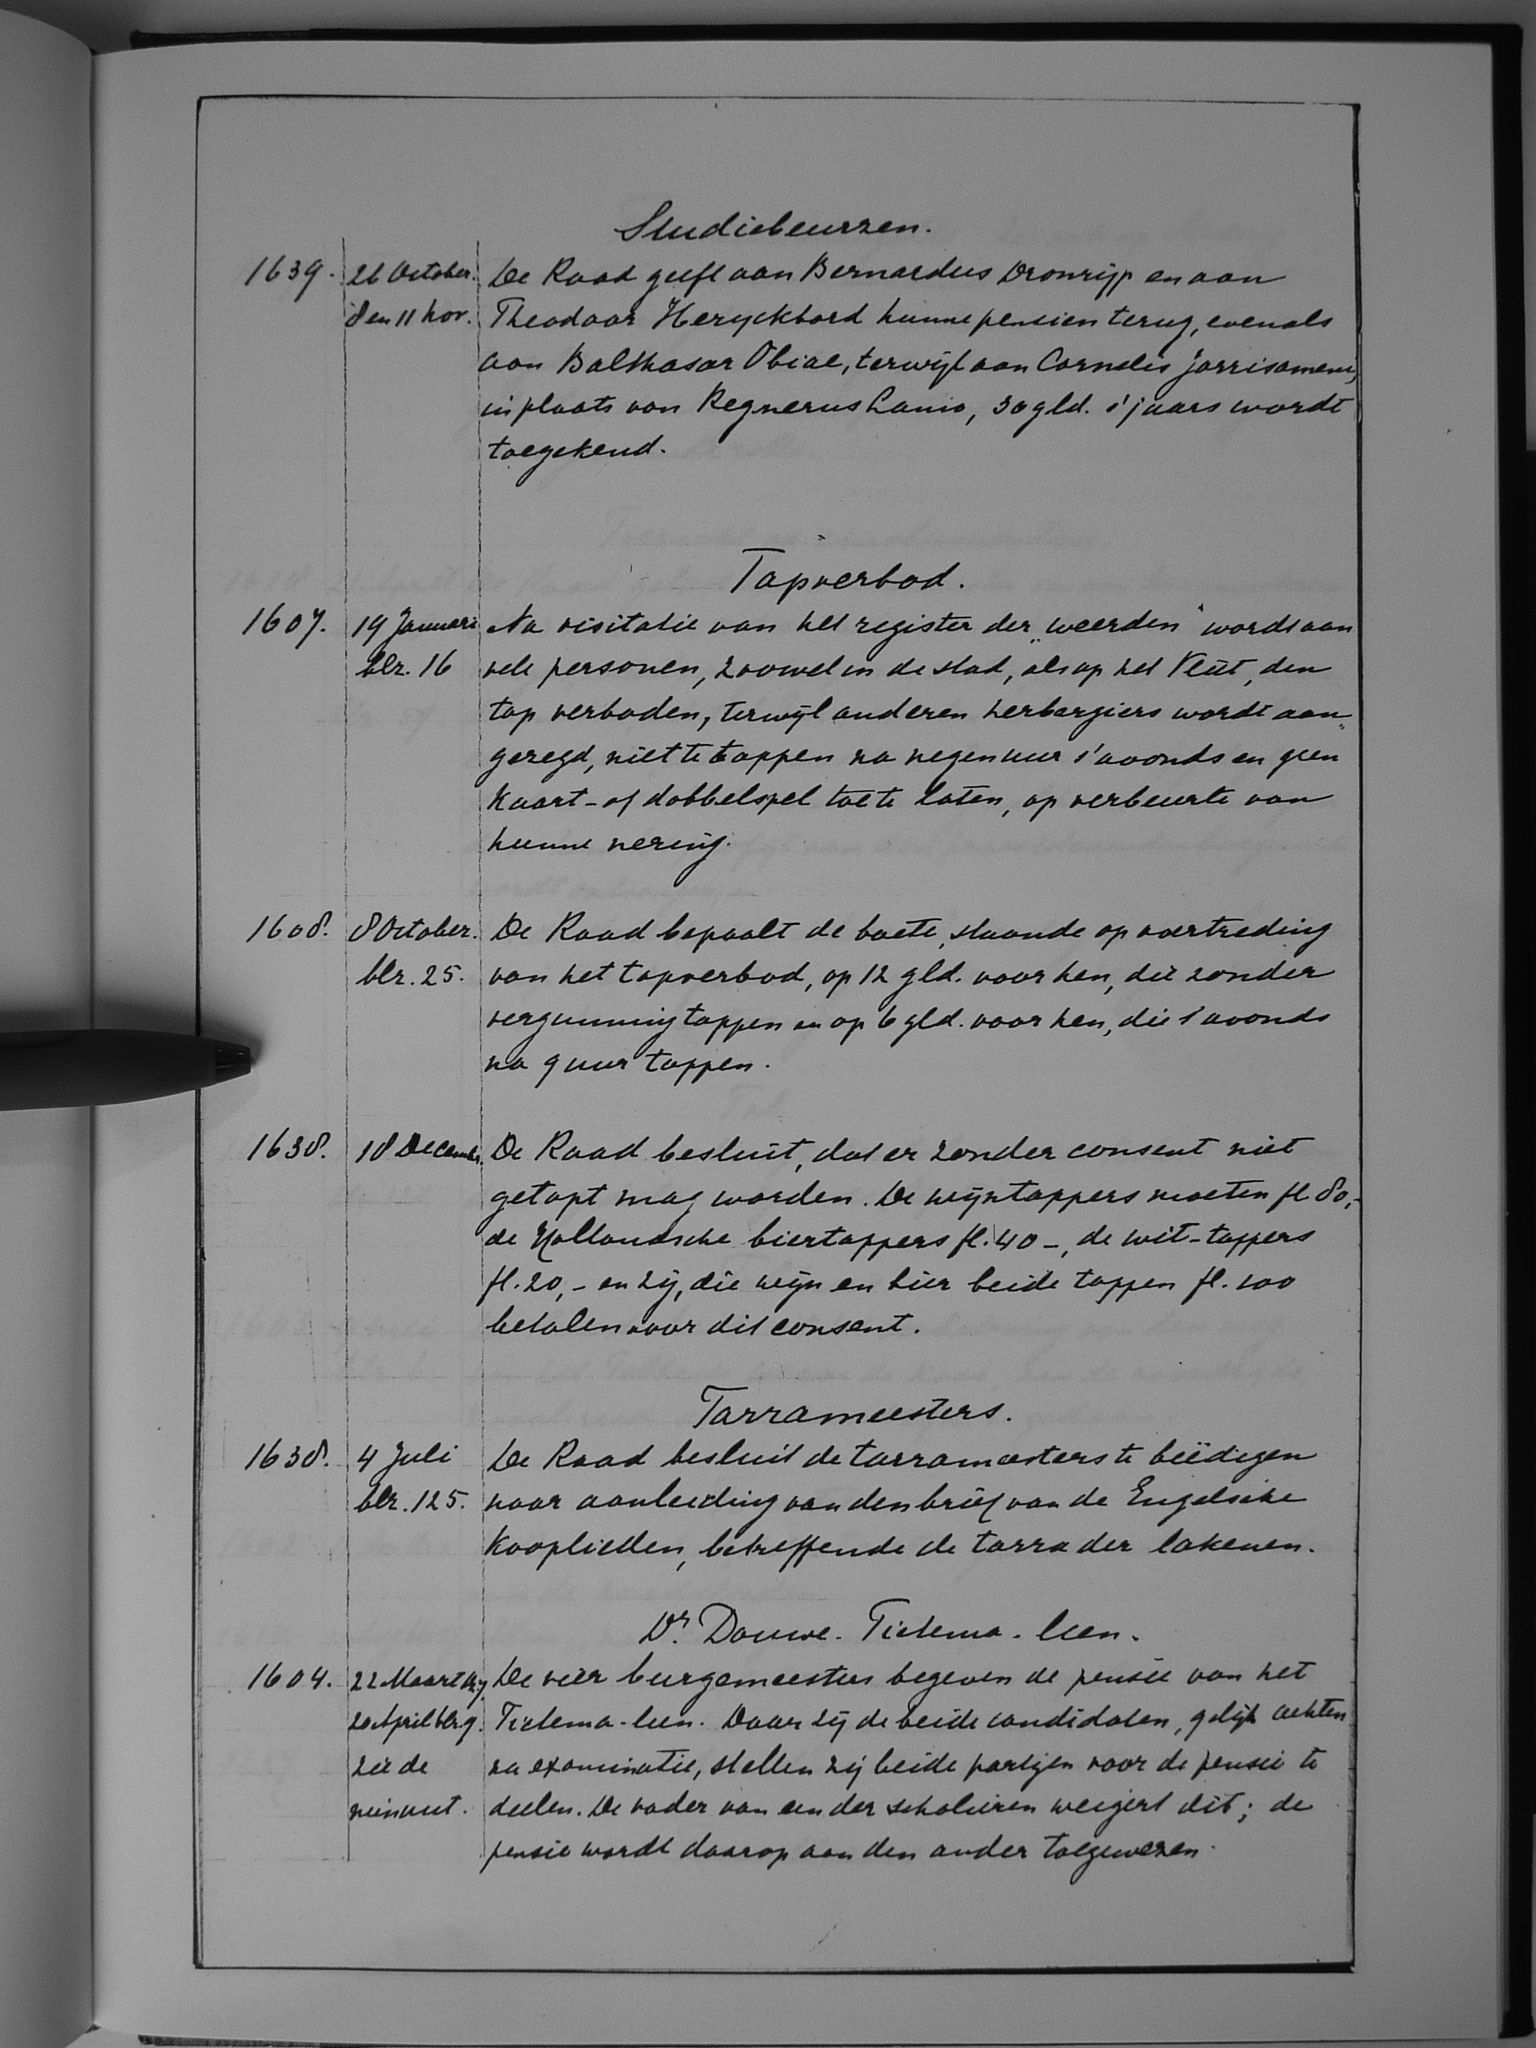 Studiebeurzen.
1639. 26 October. De Raad geeft aan Bernardus Dronrijp en aan
den 11 Nov. Theodoor Heryckbord hunne pensien terug, evenals
aan Balthasar Obiae, terwijl aan Cornelis
in plaats van Regnerus Lamo, 30 gld. s'jaars wordt
toegekend.
Tapverbod.
1607. 19 Januari Na visitatie van het register der „weerden" wordt aan
blz. 16 vele personen, zoowel in de stad, als op het Vliet, den
tap verboden, terwijl anderen herbergiers wordt aan„
gezegd, niet te tappen na negen uur s'avonds en geen
kaart- of dobbelspel toe te laten, op verbeurte van
hunne nering.
1608. 8 October. De Raad bepaalt de boete, staande op overtreding
blz. 25. van het tapverbod, op 12 gld. voor hen, die zonder
vergunning tappen en op 6 gld. voor hen, die s'avonds
na 9 uur tappen.
1638. 18 Decemb. De Raad besluit, dat er zonder consent niet
getapt mag worden. De wijntappers moeten fl 80,-
de Hollandsche biertappers fl. 40 -, de wit-tappers
fl. 20,- en zij, die wijn en bier beide tappen fl. 100
betalen voor dit consent.
Tarrameesters.
1638. 4 Juli De Raad besluit de tarrameesters te beëdigen
blz. 125. naar aanleiding van den brief van de Engelsche
Kooplieden, betreffende de tarra der lakenen.
Dr. Douwe - Tietema - leen.
1604. 22 Maart De vier burgemeesters begeven de pensie van het
20 April blz 9. Tietema-leen. Daar zij de beide candidaten, gelijk achten
zie de na examinatie, stellen zij beide partijen voor de pensie te
minuut. deelen. De vader van een der scholieren weigert dit; de
pensie wordt daarop aan den ander toegewezen.